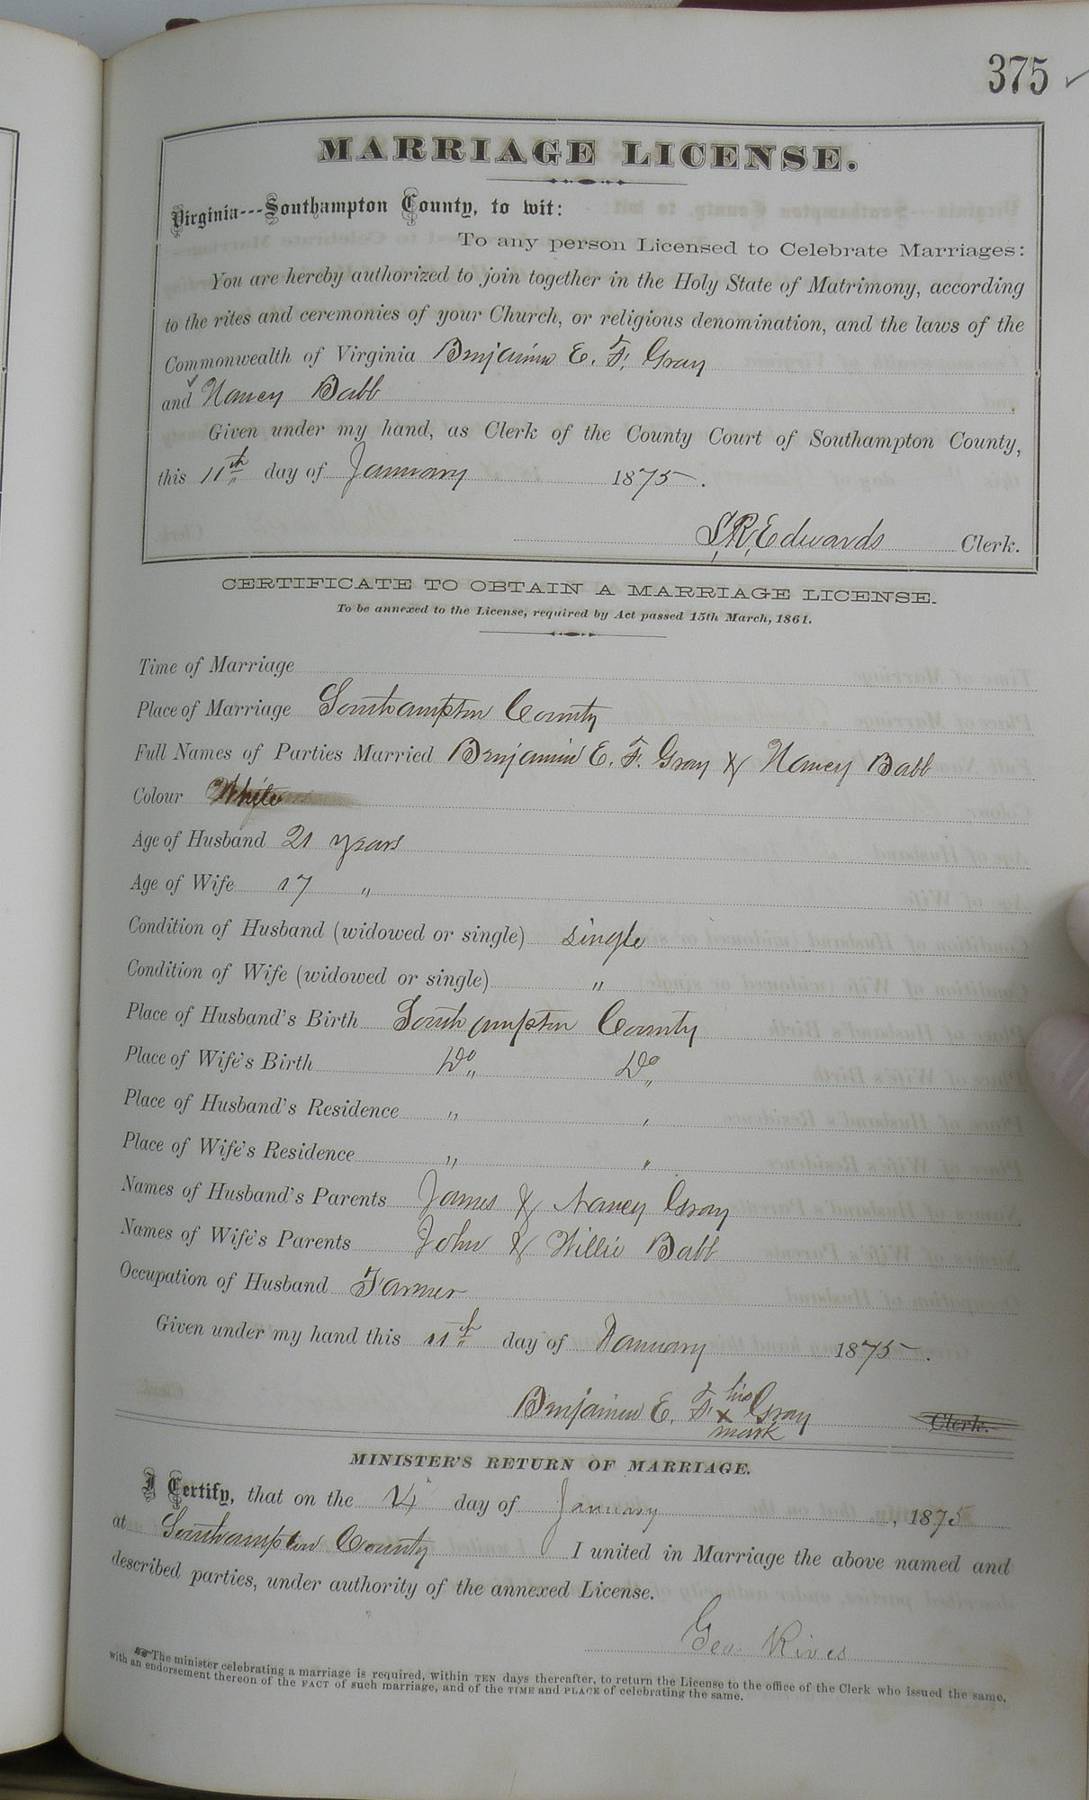 375 ✓
MARRIAGE LICENSE.
Virginia---Southampton County, to wit:
To any person Licensed to Celebrate Marriages:
You are hereby authorized to join together in the Holy State of Matrimony, according
to the rites and ceremonies of your Church, or religious denomination, and the laws of the
Commonwealth of Virginia Benjamin E. F. Gray
and Nancy Babb
Given under my hand, as Clerk of the County Court of Southampton County,
this 11th day of January 1875.
L. R. Edwards Clerk.
CERTIFICATE TO OBTAIN A MARRIAGE LICENSE.
To be annexed to the License, required by Act passed 15th March, 1861.
Time of Marriage
Place of Marriage Southampton County
Full Names of Parties Married Benjamin E. F. Gray & Nancy Babb
Colour White
Age of Husband 21 years
Age of Wife 17 "
Condition of Husband (widowed or single) single
Condition of Wife (widowed or single) "
Place of Husband's Birth Southampton County
Place of Wife's Birth Do Do
Place of Husband's Residence " "
Place of Wife's Residence " "
Names of Husband's Parents James & Nancy Gray
Names of Wife's Parents John & Willie Babb
Occupation of Husband Farmer
Given under my hand this 11th day of January 1875.
Benjamin E. F. his x mark Gray Clerk.
MINISTER'S RETURN OF MARRIAGE.
I Certify, that on the 14 day of January, 1875
at Southampton County I united in Marriage the above named and
described parties, under authority of the annexed License.
Geo. Rives
The minister celebrating a marriage is required, within TEN days thereafter, to return the License to the office of the Clerk who issued the same,
with an endorsement thereon of the FACT of such marriage, and of the TIME and PLACE of celebrating the same.